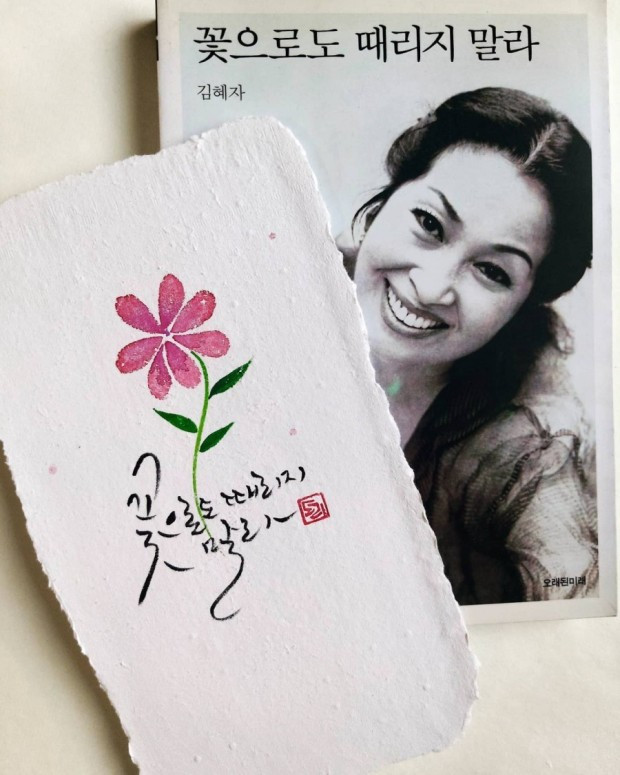 꽃으로도 때리지 말라
김혜자
오래된미래
꽃으로도 때리지
말라